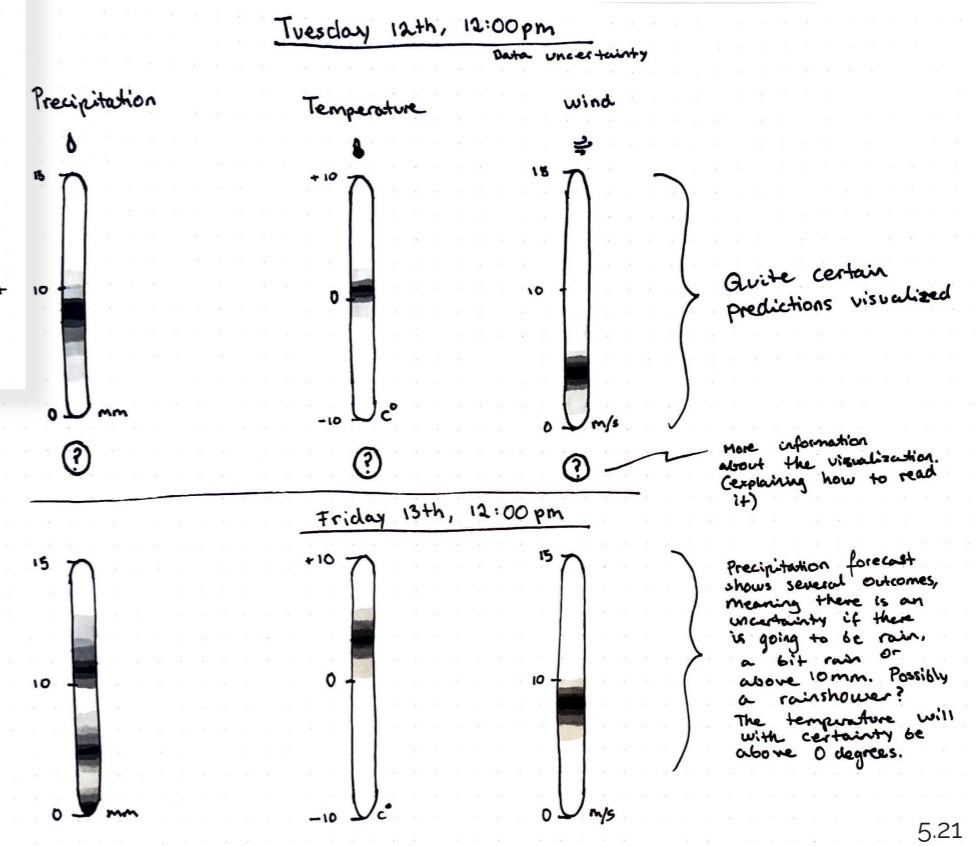 Tuesday 12th, 12:00pm
Data uncertainty
Precipitation
Temperature
wind
15
10
0
mm
+10
0
-10
C°
15
10
0
m/s
Quite certain
predictions visualized
?
?
?
More information
about the visualization.
(explaining how to read
it)
Friday 13th, 12:00pm
15
10
0
mm
+10
0
-10
C°
15
10
0
m/s
Precipitation forecast
shows several outcomes,
meaning there is an
uncertainty if there
is going to be rain,
a bit rain or
above 10mm. Possibly
a rainshower?
The temperature will
with certainty be
above 0 degrees.
5.21